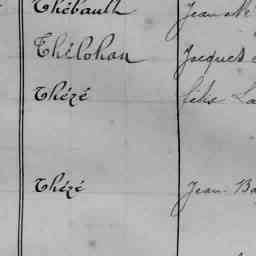 Thébault Jean M
Thélohan Jacques
Thézé félix La
Thézé Jean Ba